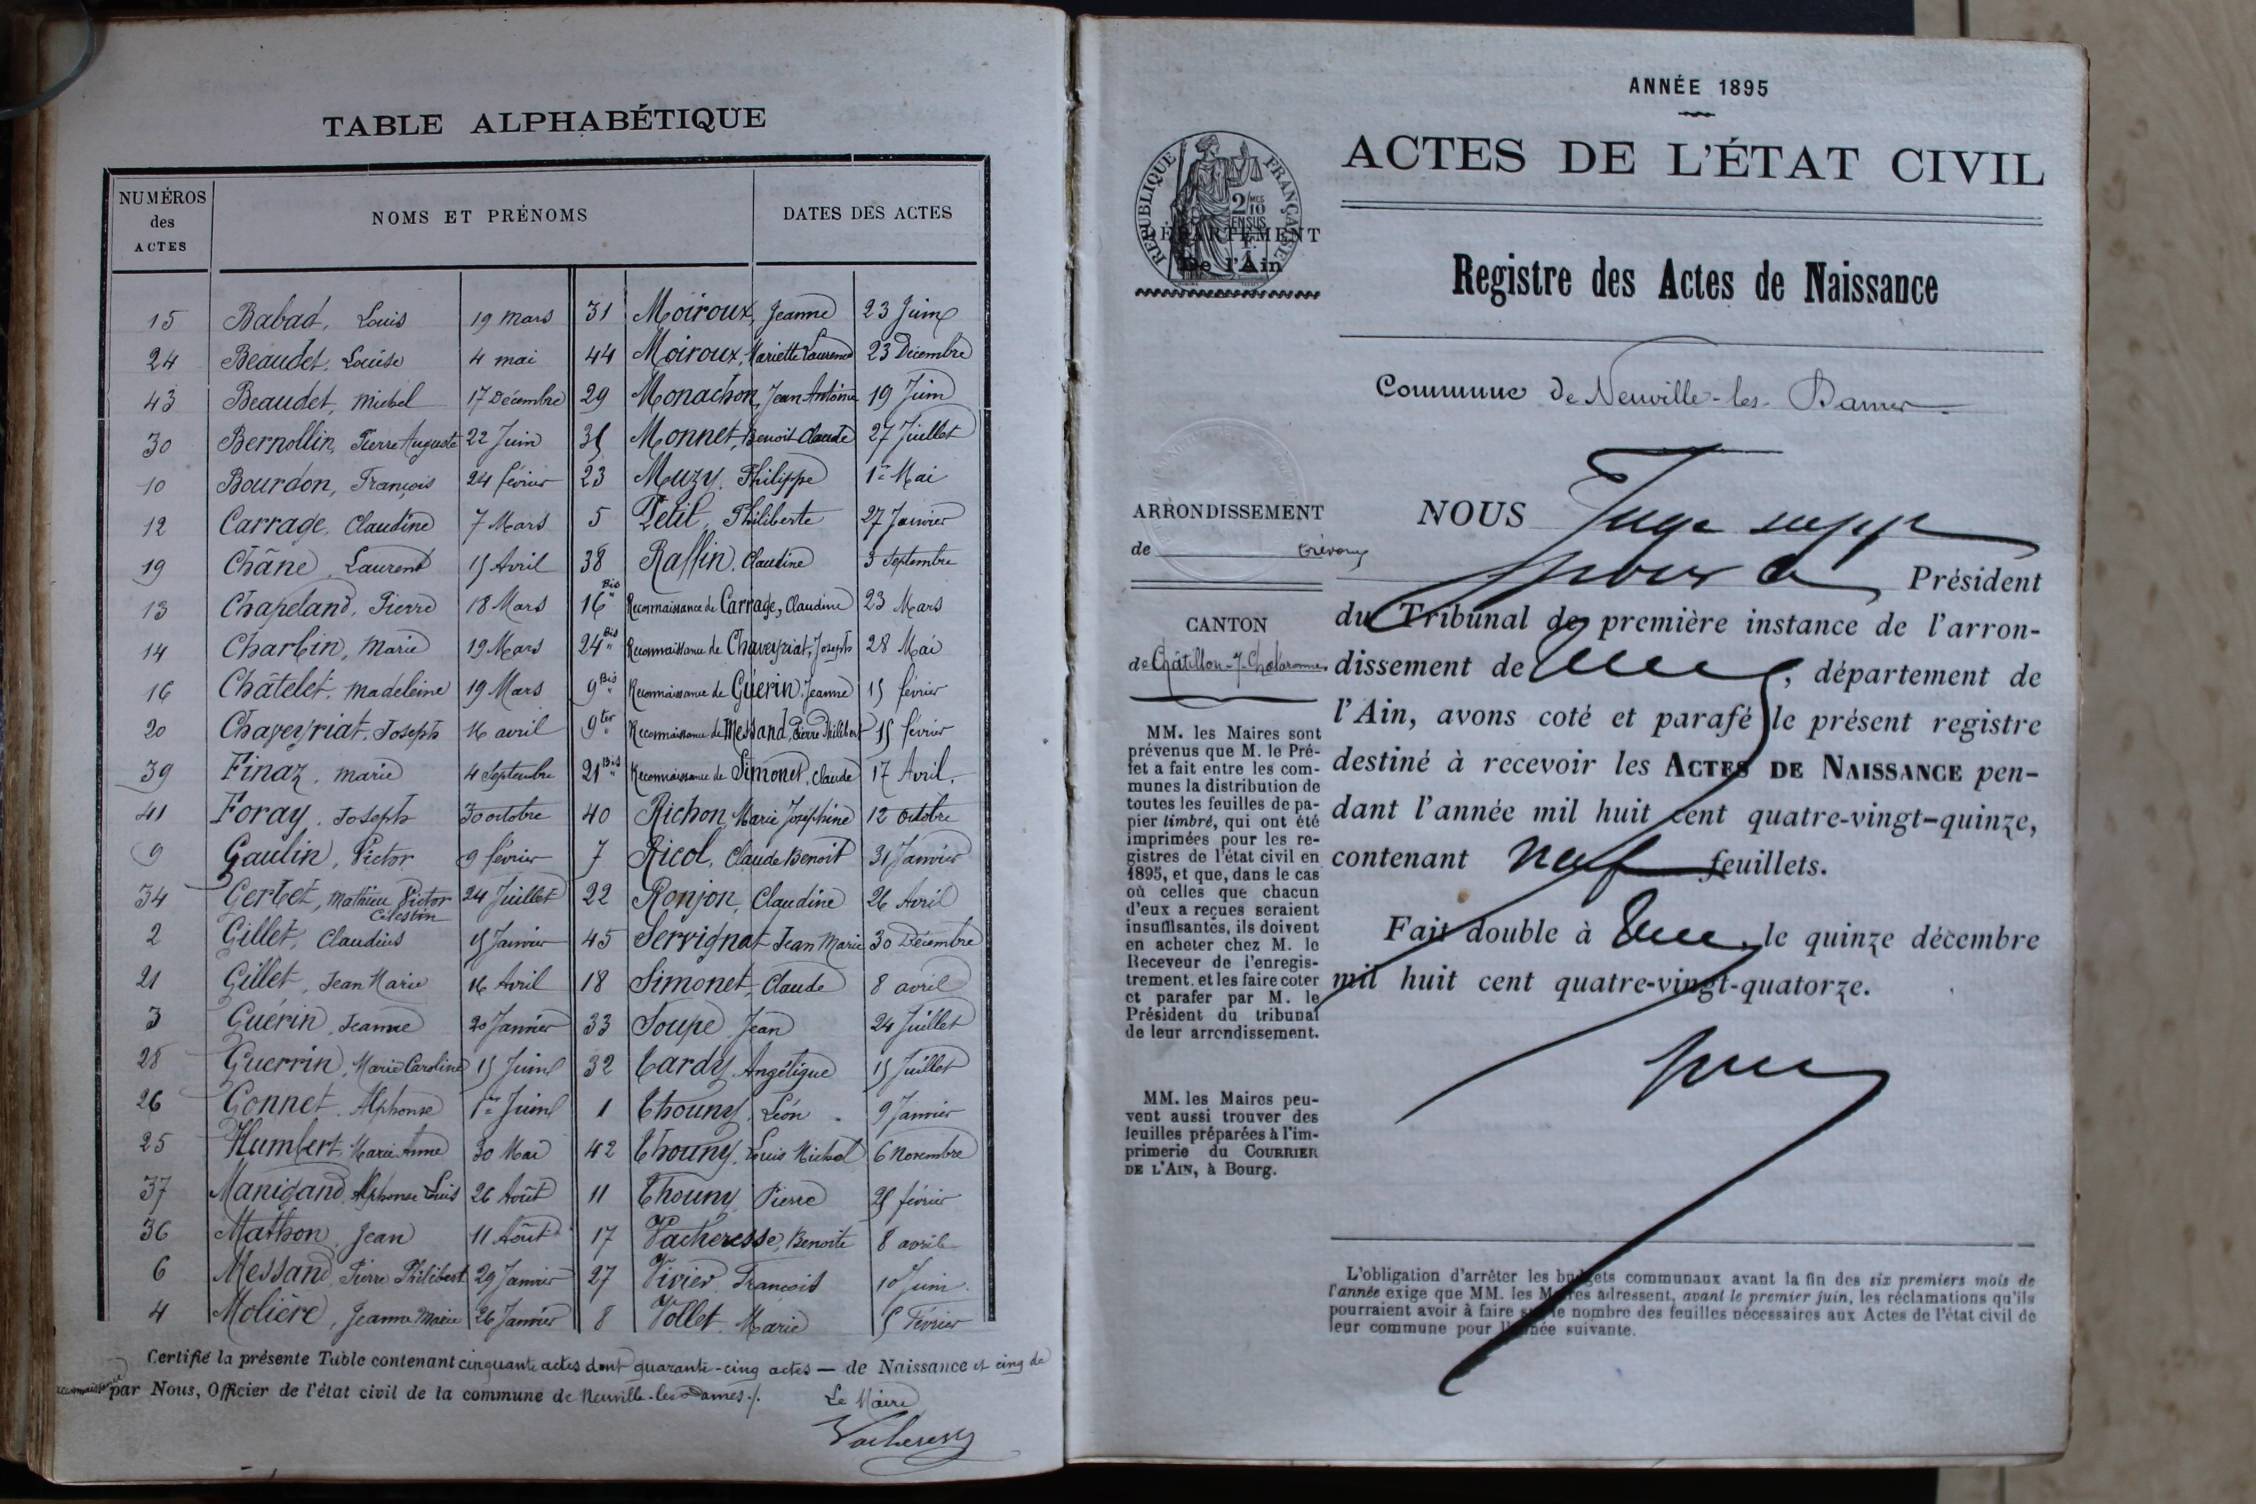 TABLE ALPHABÉTIQUE
NUMÉROS des ACTES
NOMS ET PRÉNOMS
DATES DES ACTES
15 Babad, Louis 19 mars
24 Beaudet, Louise 4 mai
43 Beaudet, Michel 17 Décembre
30 Bernollin, Pierre Auguste 22 Juin
10 Bourdon, François 24 février
12 Carrage, Claudine 7 Mars
19 Châne, Laurent 15 Avril
13 Chapeland, Pierre 18 Mars
14 Charbin, Marie 19 Mars
16 Châtelet, Madeleine 19 Mars
20 Chaveyriat, Joseph 16 avril
39 Finaz, Marie 4 Septembre
41 Foray, Joseph 30 octobre
9 Gaulin, Victor 9 février
34 Gerbet, Mathieu Victor Célestin 24 Juillet
2 Gillet, Claudius 15 Janvier
21 Gillet, Jean Marie 16 Avril
3 Guérin, Jeanne 20 Janvier
28 Guerrin, Marie Caroline 15 Juin
26 Gonnet, Alphonse 1er Juin
25 Humbert, Marie Anne 30 Mai
37 Manigand, Alphonse Louis 26 Août
36 Mathon, Jean 11 Août
6 Messand, Pierre Philibert 29 Janvier
4 Molière, Jeanne Marie 26 Janvier
31 Moiroux, Jeanne 23 Juin
44 Moiroux, Mariette Laurence 23 Décembre
29 Monachon, Jean Antoine 19 Juin
35 Monnet, Benoit Claude 27 Juillet
23 Muzy, Philippe 1er Mai
5 Petit, Philiberte 27 Janvier
38 Raffin, Claudine 3 Septembre
16 Bis Reconnaissance de Carrage, Claudine 23 Mars
24 Bis Reconnaissance de Chaveyriat, Joseph 28 Mai
9 Bis Reconnaissance de Guérin, Jeanne 15 février
9 ter Reconnaissance de Messand, Pierre Philibert 15 février
21 Bis Reconnaissance de Simonet, Claude 17 Avril.
40 Richon, Marie Joséphine 12 octobre
7 Ricol, Claude Benoit 31 Janvier
22 Ronjon, Claudine 26 Avril
45 Servignat Jean Marie 30 Décembre
18 Simonet, Claude 8 avril
33 Soupe, Jean 24 Juillet
32 Tardy, Angélique 15 Juillet
1 Thouny, Léon 9 Janvier
42 Thouny, Louis Michel 6 Novembre
11 Thouny, Pierre 25 février
17 Vacheresse, Benoite 8 avril
27 Vivier, François 10 Juin.
8 Vollet, Marie 5 Février
Certifié la présente Table contenant cinquante actes dont quarante-cinq actes — de Naissance et cinq de
reconnaissance par Nous, Officier de l'état civil de la commune de Neuville-les-Dames./.
Le Maire
Vacheresse
ANNÉE 1895
ACTES DE L'ÉTAT CIVIL
RÉPUBLIQUE FRANÇAISE
2/10 MES EN SUS
DÉPARTEMENT
De l'Ain
Registre des Actes de Naissance
Commune de Neuville-les-Dames
ARRONDISSEMENT
de Trévoux
CANTON
de Châtillon-s-Chalaronne
MM. les Maires sont
prévenus que M. le Pré-
fet a fait entre les com-
munes la distribution de
toutes les feuilles de pa-
pier timbré, qui ont été
imprimées pour les re-
gistres de l'état civil en
1895, et que, dans le cas
où celles que chacun
d'eux a reçues seraient
insuffisantes, ils doivent
en acheter chez M. le
Receveur de l'enregis-
trement, et les faire coter
et parafer par M. le
Président du tribunal
de leur arrondissement.
MM. les Maires peu-
vent aussi trouver des
feuilles préparées à l'im-
primerie du COURRIER
DE L'AIN, à Bourg.
NOUS Juge supp
pour le Président
du Tribunal de première instance de l'arron-
dissement de , département de
l'Ain, avons coté et parafé le présent registre
destiné à recevoir les ACTES DE NAISSANCE pen-
dant l'année mil huit cent quatre-vingt-quinze,
contenant neuf feuillets.
Fait double à , le quinze décembre
mil huit cent quatre-vingt-quatorze.
L'obligation d'arrêter les budgets communaux avant la fin des six premiers mois de
l'année exige que MM. les Maires adressent, avant le premier juin, les réclamations qu'ils
pourraient avoir à faire sur le nombre des feuilles nécessaires aux Actes de l'état civil de
leur commune pour l'année suivante.